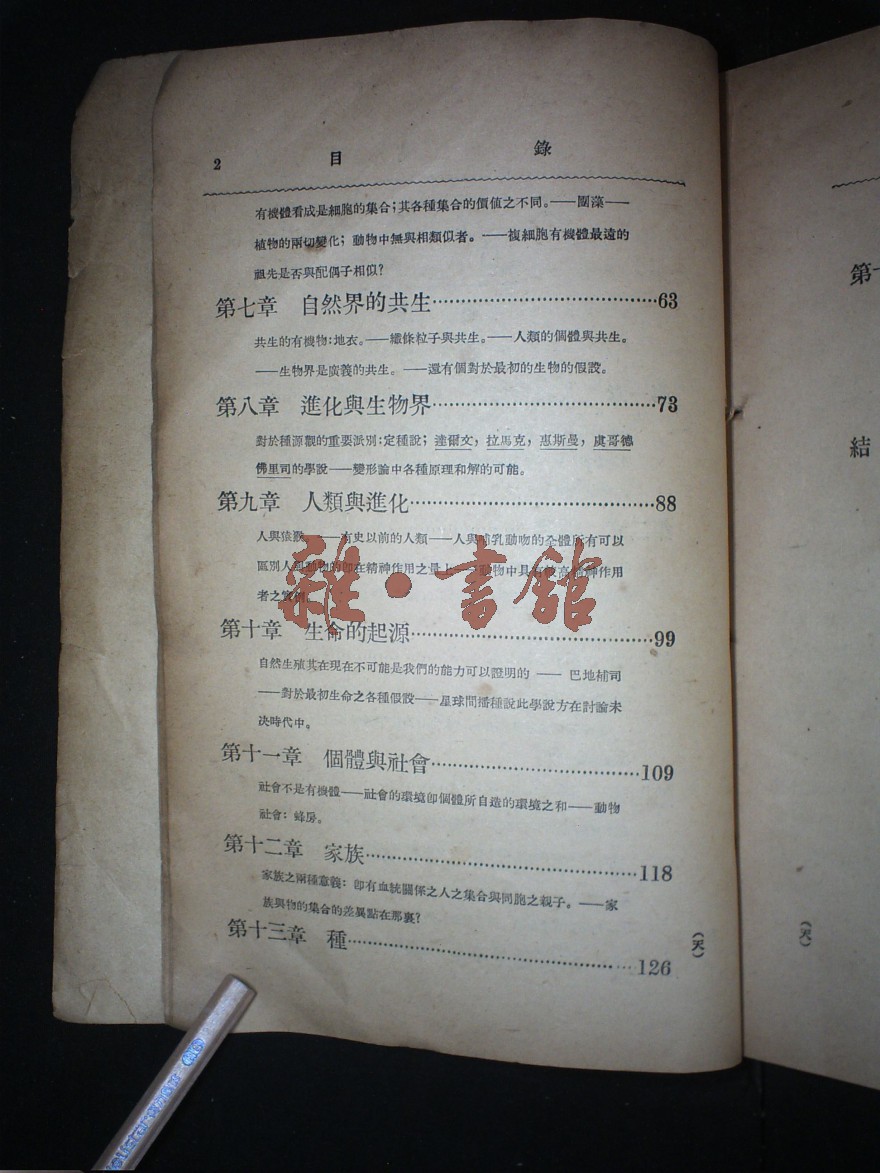 2 目 錄
有機體看成是細胞的集合；其各種集合的價値之不同。——團藻——
植物的兩切變化；動物中無與相類似者。——複細胞有機體最遠的
祖先是否與配偶子相似？
第七章 自然界的共生……63
共生的有機物：地衣。——纖條粒子與共生。——人類的個體與共生。
——生物界是廣義的共生。——還有個對於最初的生物的假設。
第八章 進化與生物界……73
對於種源觀的重要派別：定種說；達爾文，拉馬克，惠斯曼，虞哥德
佛里司的學說——變形論中各種原理和解的可能。
第九章 人類與進化……88
人與猿猴。——有史以前的人類——人與哺乳動物的全體所有可以
區別人類動物的卽在精神作用之量上——動物中具有較高精神作用
者之實例。
第十章 生命的起源……99
自然生殖其在現在不可能是我們的能力可以證明的——巴地補司
——對於最初生命之各種假設——星球間播種說此學說方在討論未
决時代中。
第十一章 個體與社會……109
社會不是有機體——社會的環境卽個體所自造的環境之和——動物
社會：蜂房。
第十二章 家族……118
家族之兩種意義：卽有血統關係之人之集合與同胞之親子。——家
族與物的集合的差異點在那裏？
第十三章 種……126
（天）
（天）
第十
結
雜·書館